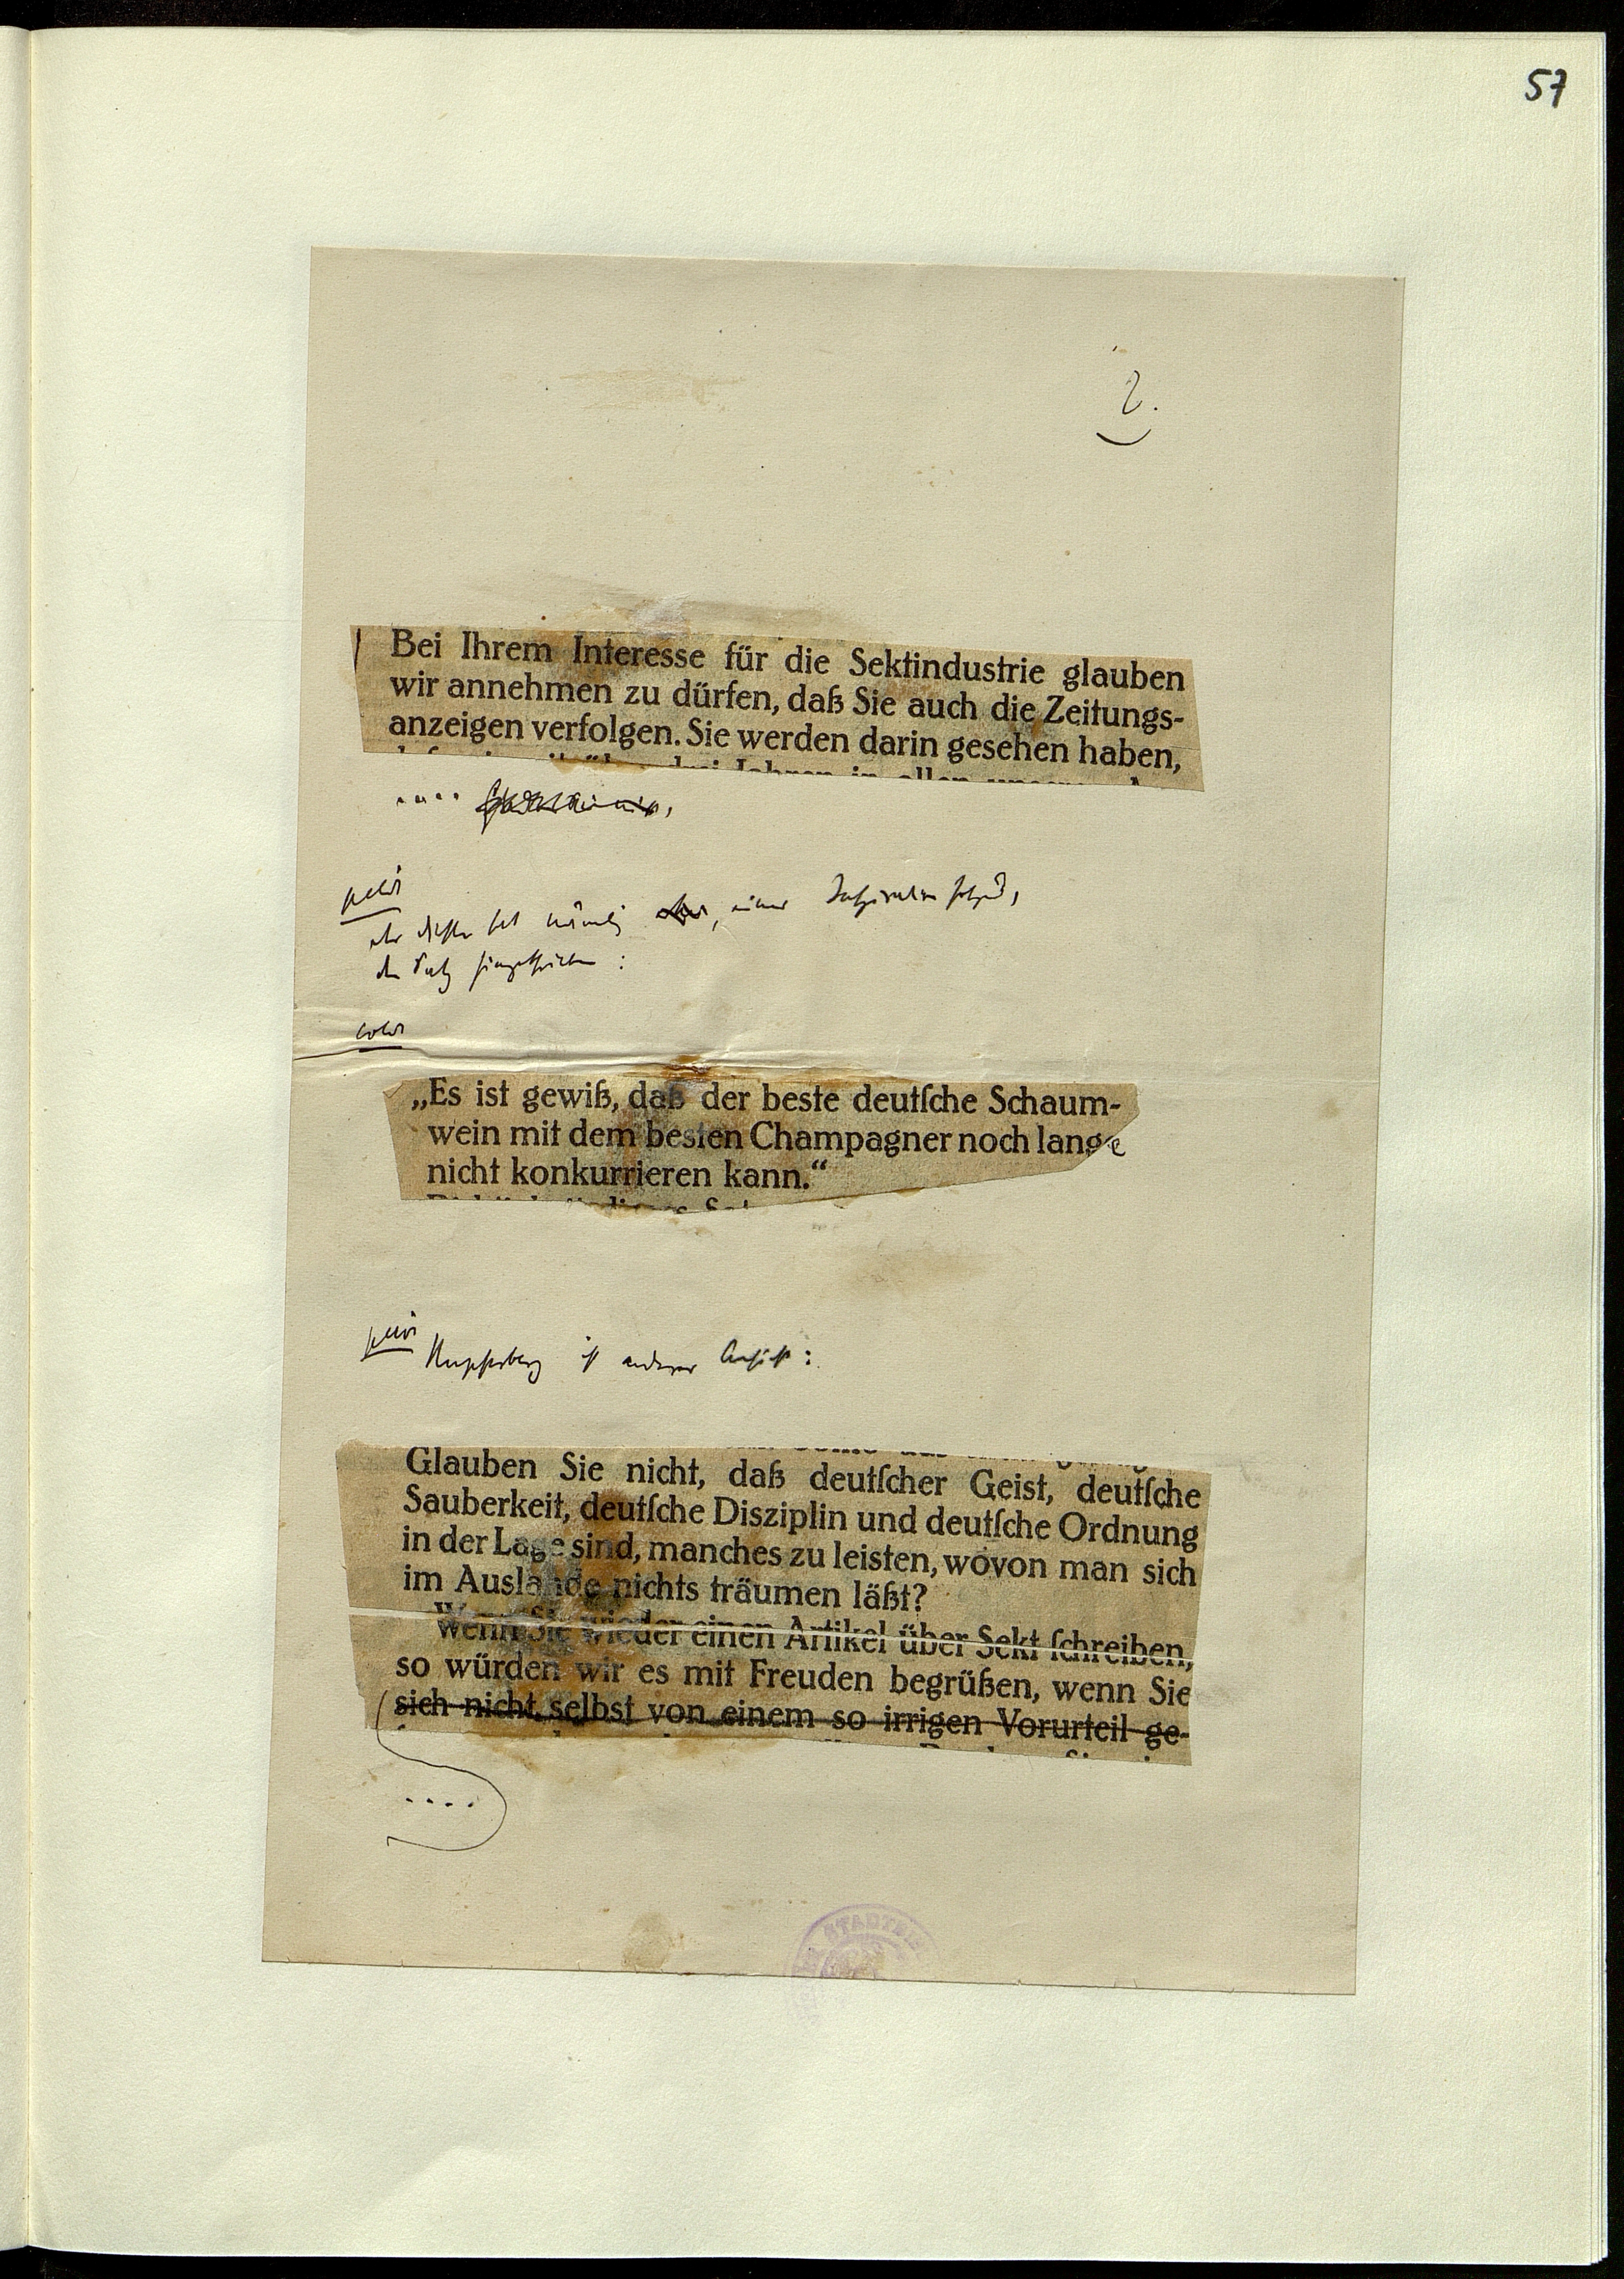 57
2.
Bei Ihrem Interesse für die Sektindustrie glauben
wir annehmen zu dürfen, daß Sie auch die Zeitungs-
anzeigen verfolgen. Sie werden darin gesehen haben,
....
petit
der Dichter hat nämlich, einer Inspiration folgend,
den Satz hingeschrieben:
color
„Es ist gewiß, daß der beste deutſche Schaum-
wein mit dem besten Champagner noch lange
nicht konkurrieren kann.“
petit
Kupferberg ist anderer Ansicht:
Glauben Sie nicht, daß deutſcher Geist, deutſche
Sauberkeit, deutſche Disziplin und deutſche Ordnung
in der Lage sind, manches zu leisten, wovon man sich
im Auslande nichts träumen läßt?
Wenn Sie wieder einen Artikel über Sekt ſchreiben,
so würden wir es mit Freuden begrüßen, wenn Sie
sich nicht selbst von einem so irrigen Vorurteil ge-
....